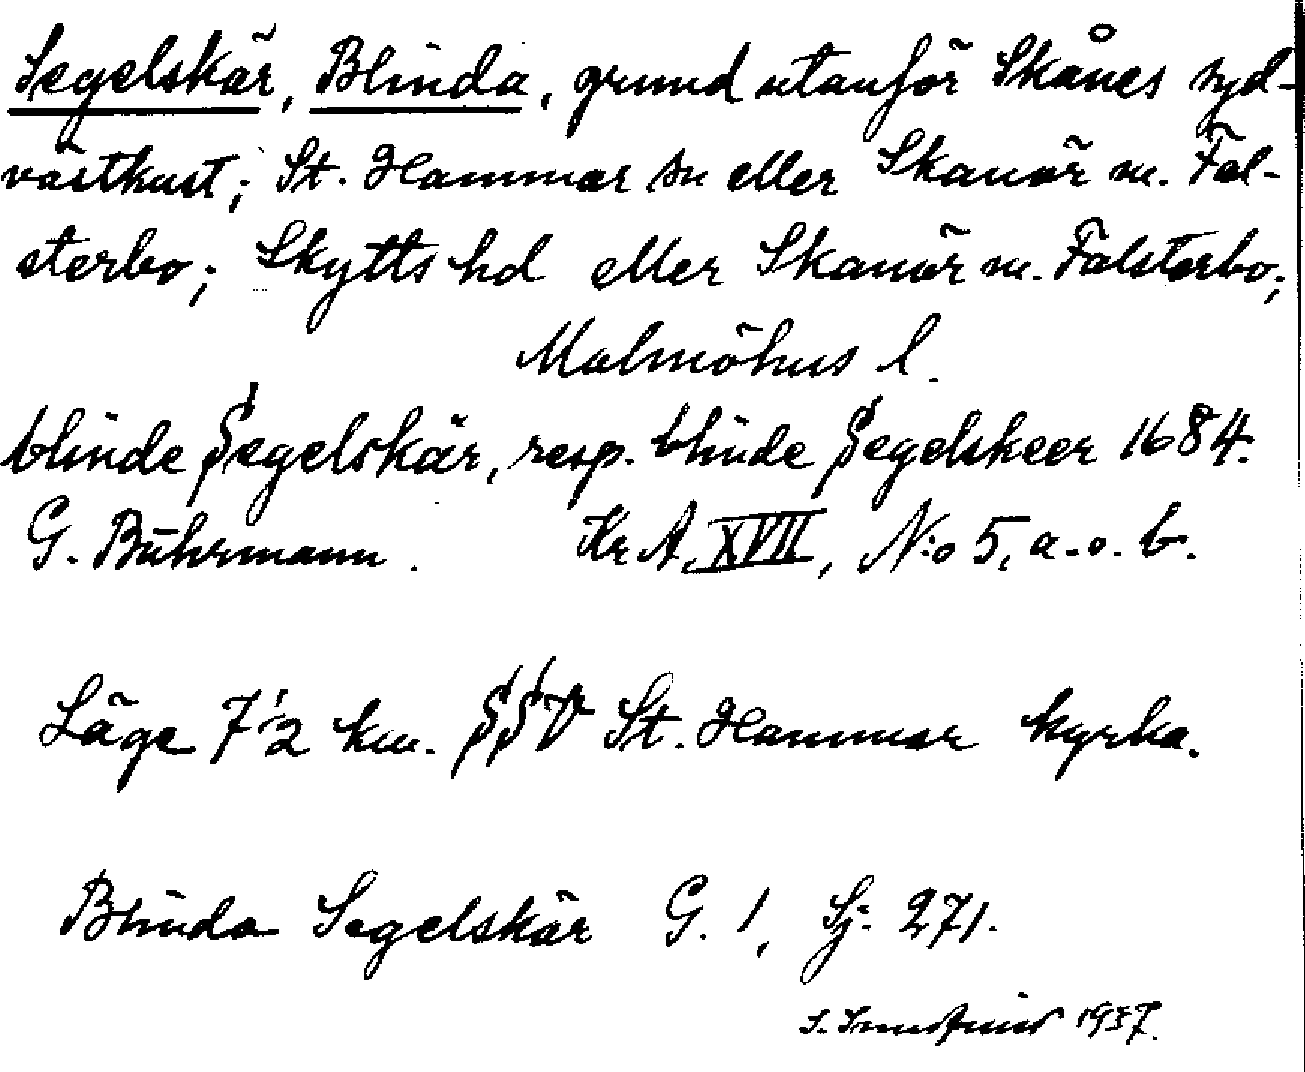 Segelskär, Blinda, grund utanför Skånes syd-
västkust; St. Hammar sn eller Skanör m. Fal-
sterbo; Skytts hd eller Skanör m. Falsterbo;
Malmöhus l.
blinde Segelskär, resp. blinde Segelskeer 1684.
G. Buhrmann. Kr A. XVII, N:o 5, a. o. b.
Läge 7 1/2 km. SSV St. Hammar kyrka.
Blinda Segelskär G. 1, Sj. 271.
S. 1937.